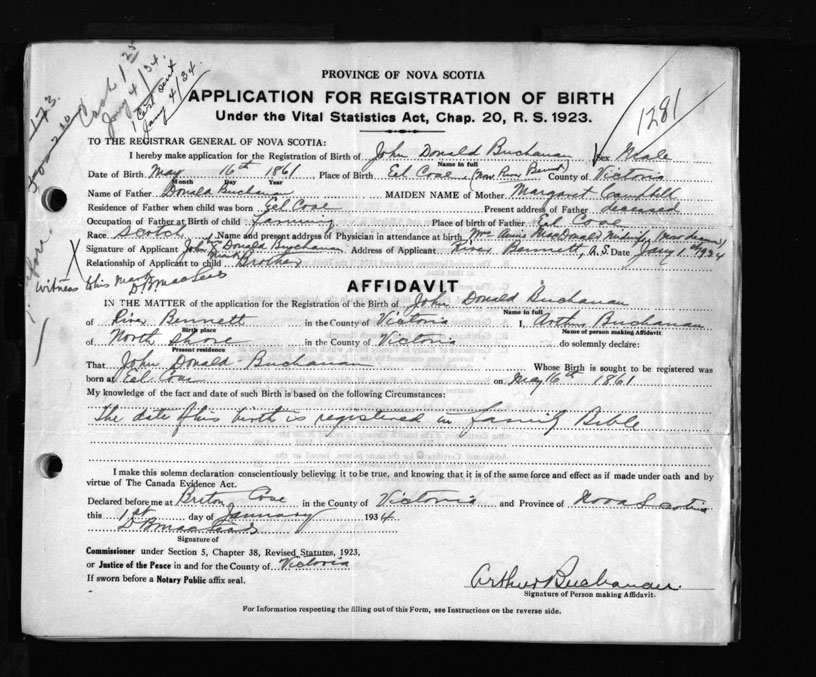 173.
Cash 1.25
Jany 4/34.
1 Cert sent
Jany 4/34.
1281
PROVINCE OF NOVA SCOTIA
APPLICATION FOR REGISTRATION OF BIRTH
Under the Vital Statistics Act, Chap. 20, R. S. 1923.
TO THE REGISTRAR GENERAL OF NOVA SCOTIA:
I hereby make application for the Registration of Birth of John Donald Buchanan Sex Male
Name in full
Date of Birth May 16th 1861 Place of Birth Eel Cove (Now River Bennet) County of Victoria
Month Day Year
Name of Father Donald Buchanan MAIDEN NAME of Mother Margaret Campbell
Residence of Father when child was born Eel Cove Present address of Father deceased
Occupation of Father at Birth of child Farming Place of birth of Father Eel Cove
Race Scotch Name and present address of Physician in attendance at birth Mrs Annie MacDonald Midwife (Now deceased)
Signature of Applicant John X Donald Buchanan Address of Applicant River Bennett, N. S. Date Jany 1st 1934
Mark
Relationship of Applicant to child Brother
X witness to his mark D B MacLeod
AFFIDAVIT
IN THE MATTER of the application for the Registration of the Birth of John Donald Buchanan
Name in full
of River Bennett in the County of Victoria I, Arthur Buchanan
Birth place Name of person making Affidavit
of North Shore in the County of Victoria do solemnly declare:
Present residence
That John Donald Buchanan Whose Birth is sought to be registered was
born at Eel Cove on May 16th 1861
My knowledge of the fact and date of such Birth is based on the following Circumstances:
The date of his birth is registered in Family Bible
I make this solemn declaration conscientiously believing it to be true, and knowing that it is of the same force and effect as if made under oath and by
virtue of The Canada Evidence Act.
Declared before me at Breton Cove in the County of Victoria and Province of Nova Scotia
this 1st day of January 1934
D B MacLeod
Signature of
Commissioner under Section 5, Chapter 38, Revised Statutes, 1923,
or Justice of the Peace in and for the County of Victoria
If sworn before a Notary Public affix seal.
Arthur Buchanan.
Signature of Person making Affidavit.
For Information respecting the filling out of this Form, see Instructions on the reverse side.